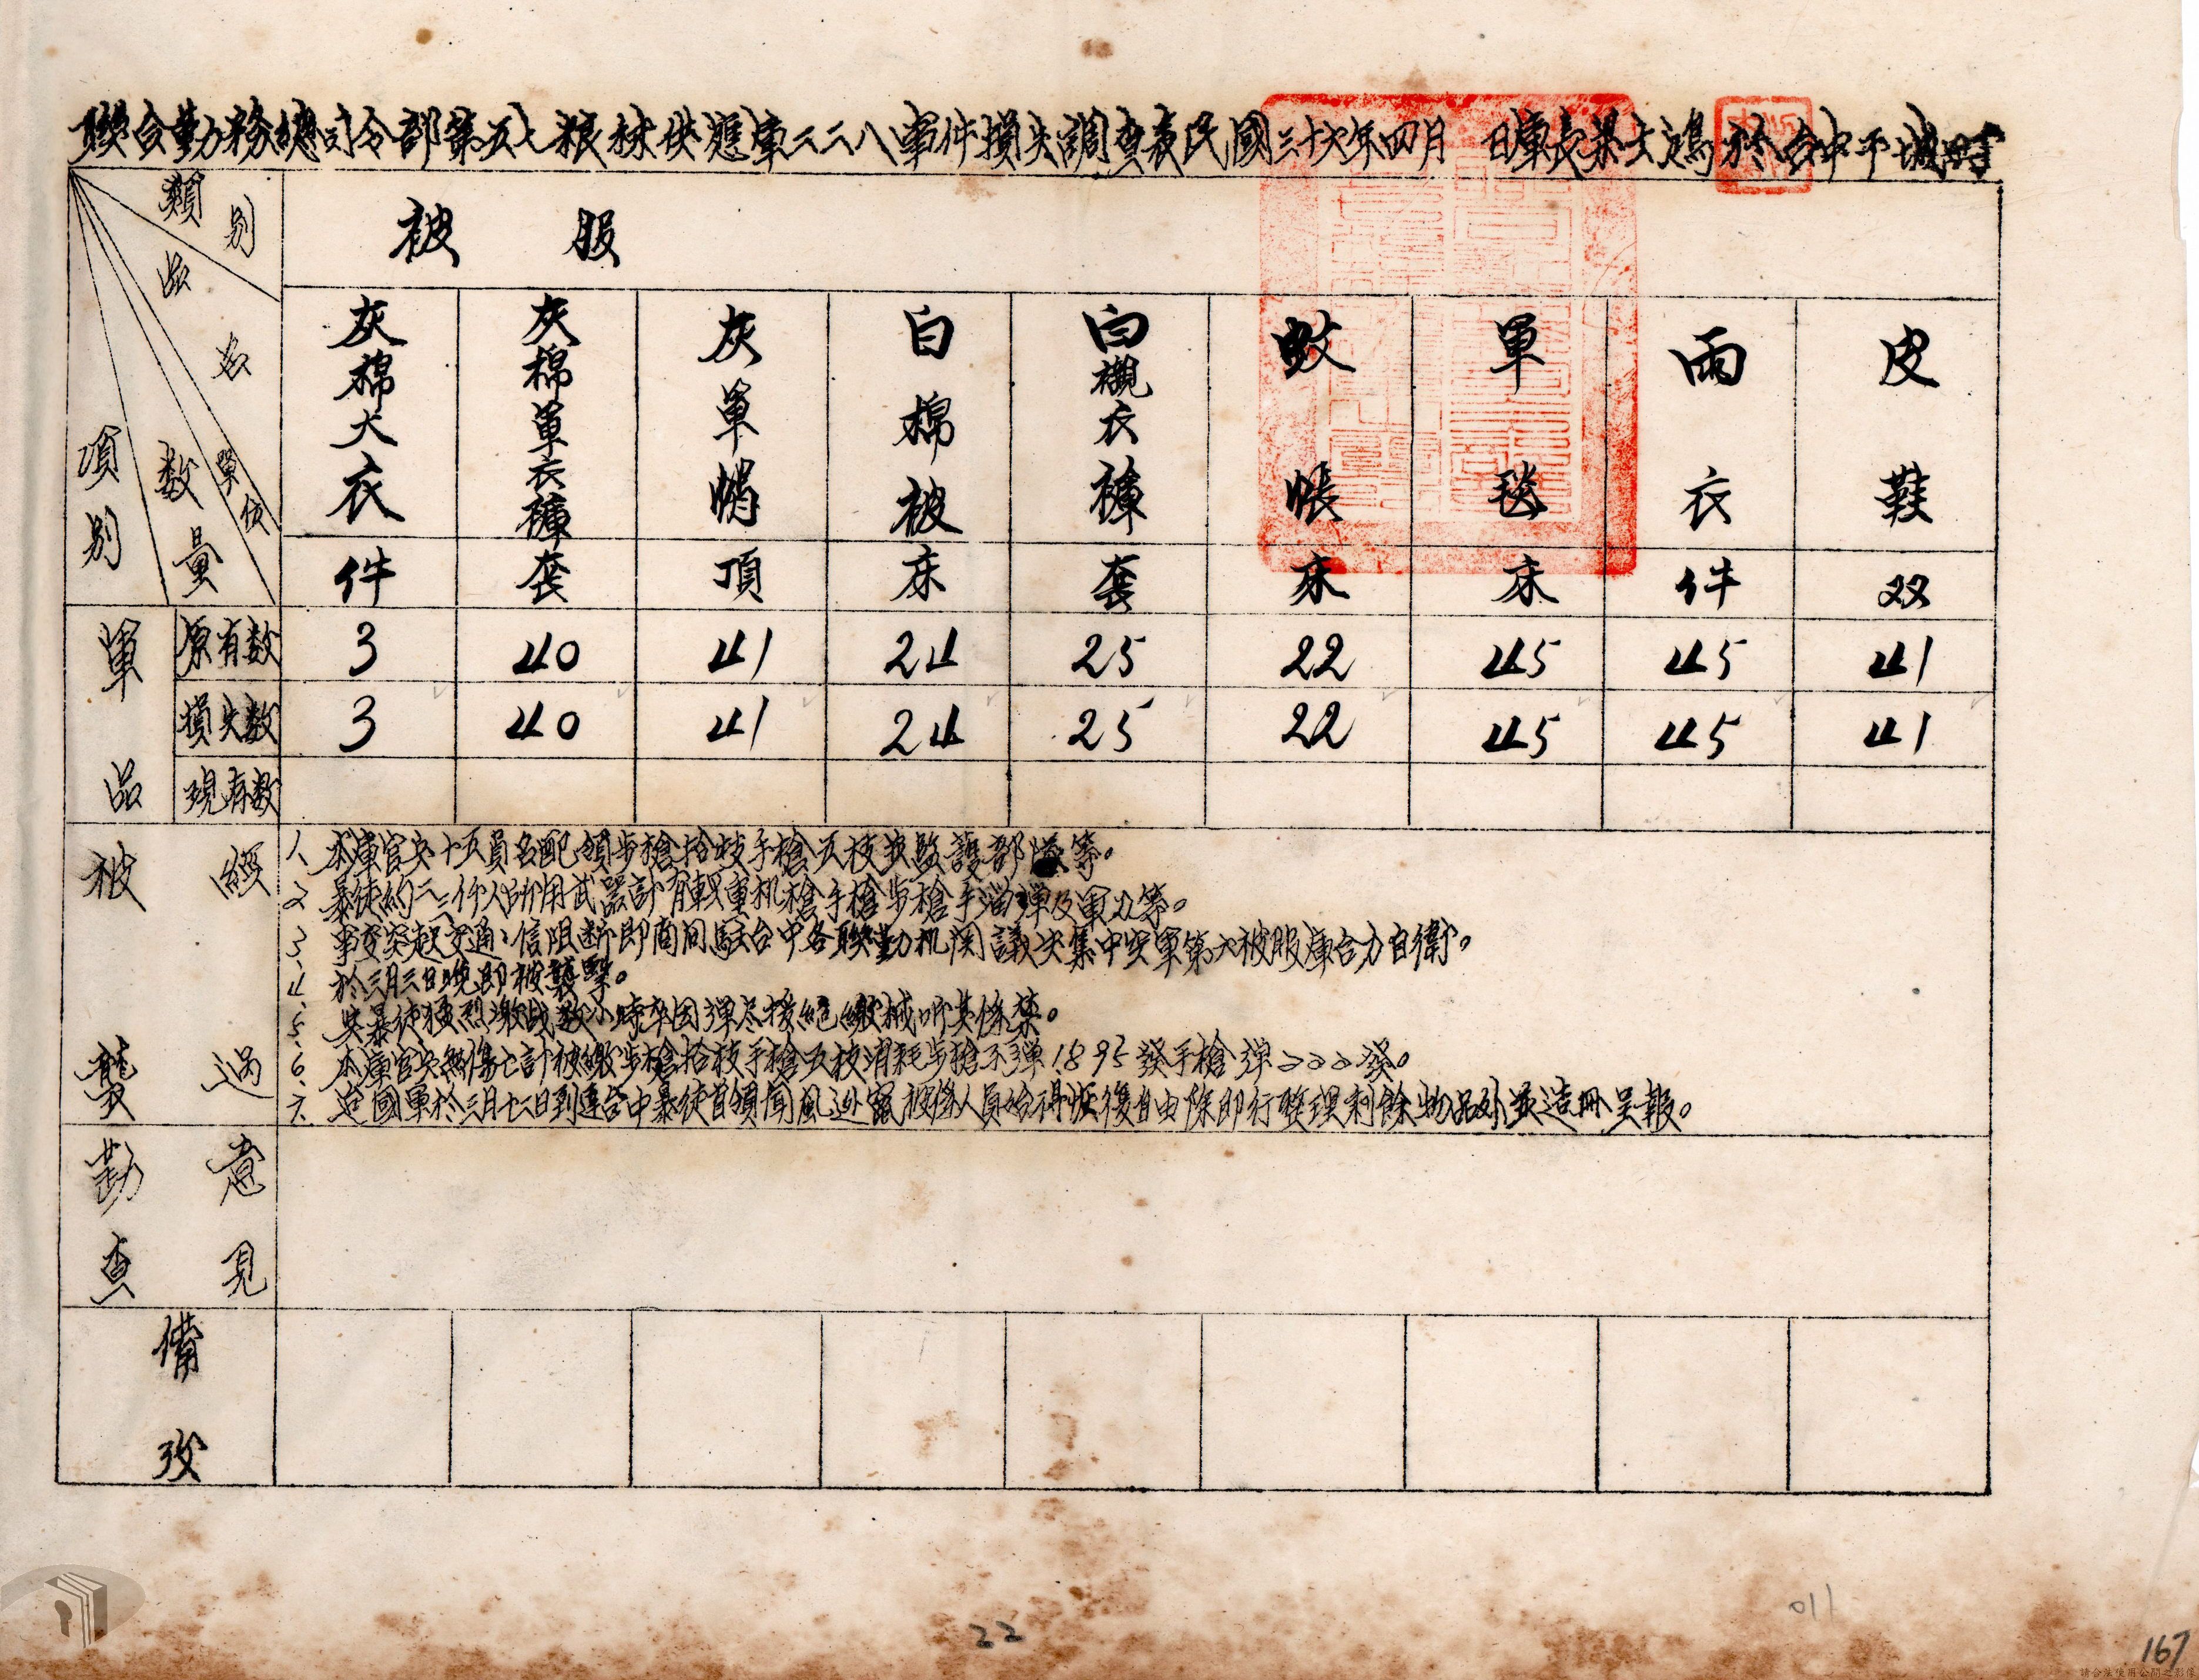 聯合勤務總司令部第五七粮秣供應庫二二八事件損失調查表民國三十六年四月 日庫長 士 於台中干城
類別
品名
單位
數量
項別
被服
灰棉大衣
灰棉單衣褲
灰單帽
白棉被
白襯衣褲
蚊帳
軍毯
雨衣
皮鞋
件 套 頂 床 套 床 床 件 双
軍品
原有数 3 40 41 24 25 22 45 45 41
損失数 3 40 41 24 25 22 45 45 41
現存数
被襲經過
1、本庫官兵十五員名配領步槍拾枝手槍五枝並監護部隊等。
2、暴徒約二三仟人所用武器計有輕重机槍手槍步槍手溜弹及軍刀等。
3、事变突起交通、信阻断即商同駐台中各聯勤机関議决集中空軍第六被服庫合力自衛。
4、於三月三日晚即被襲擊。
5、與暴徒猛烈激战数小時卒因弹尽援絕繳械听其條禁。
6、本庫官兵無傷亡計被繳步槍拾枝手槍五枝消耗步槍子弹1895發手槍弹222發。
六、迨國軍於三月十三日到達台中暴徒首領聞風逃竄被 人員始得恢復自由除即行整理剩餘物品外並造冊呈報。
勘查意見
備攷
22
011
167
請合法使用公開之影像